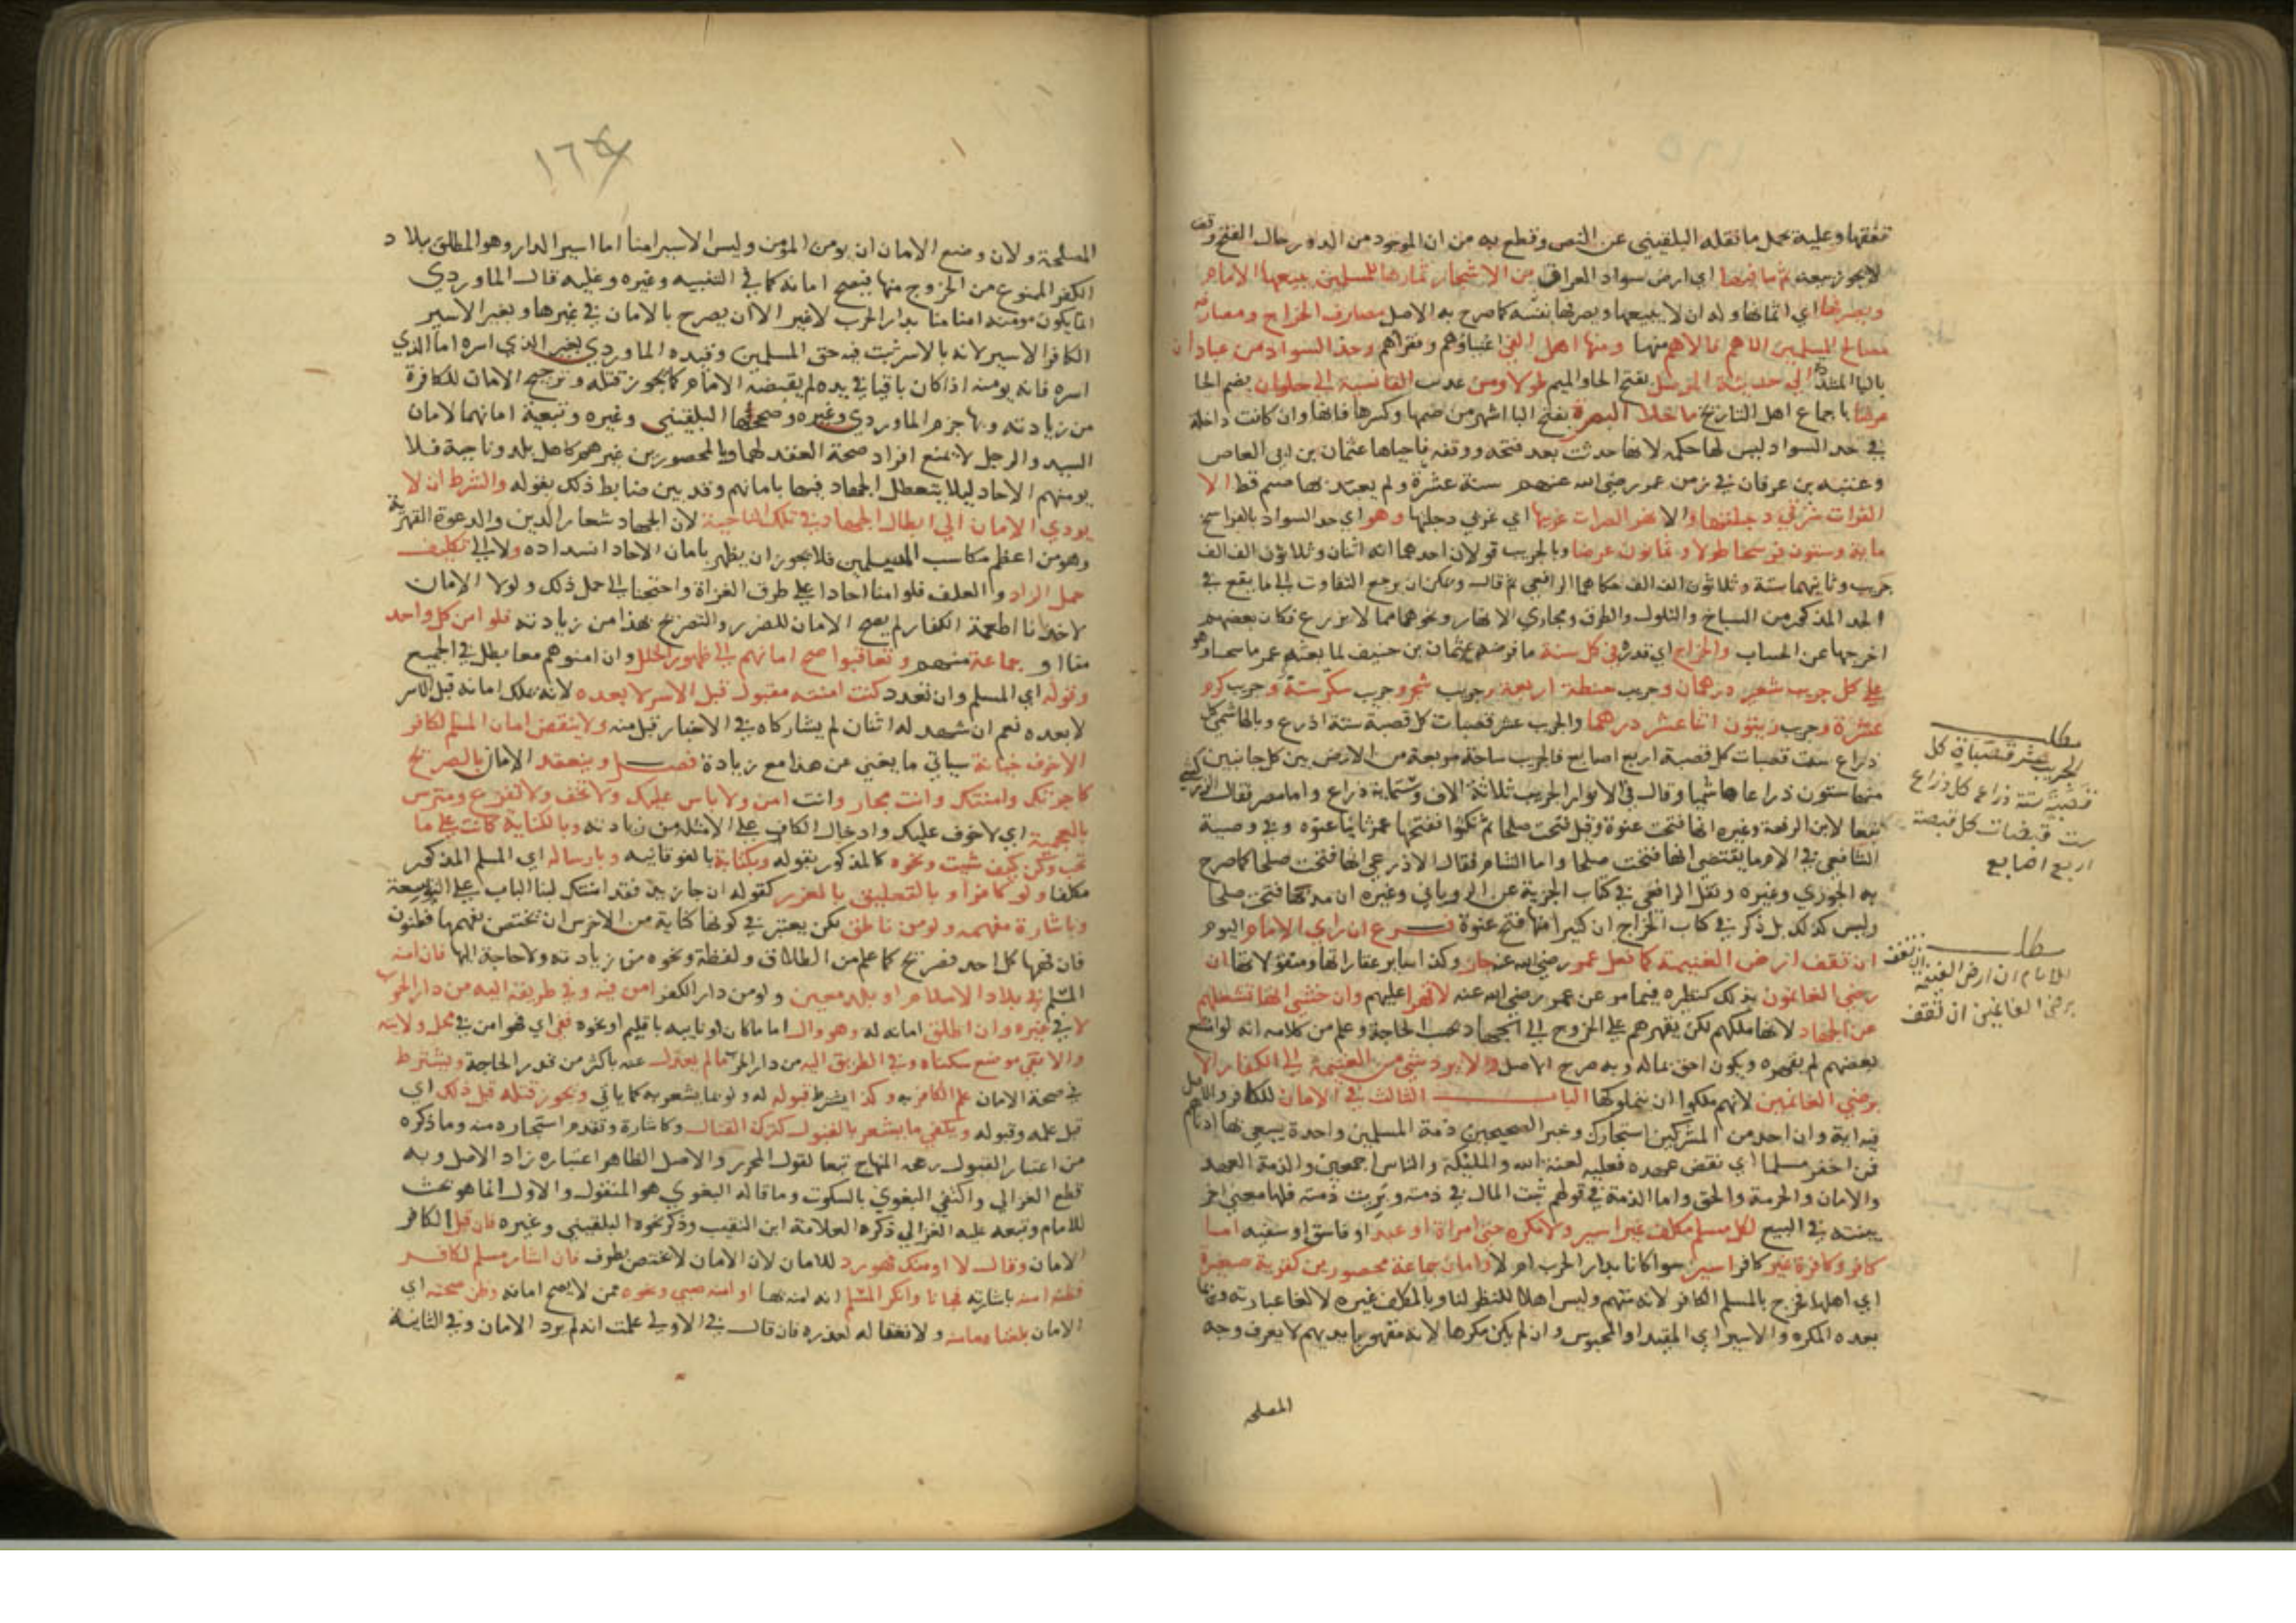 تفقها وعليه يحمل ما نقله البلقيني عن النص وقطع به من ان الموجود من الدور حال الفتح وقف
لا يجوز بيعه ثم ما فيها اي ارض سواد العراق من الاشجار ثمارها للمسلمين يبيعها الامام
ويصرفها اي اثمانها وله ان لا يبيعها ويصرفها بنفسه كما صرح به الاصل مصارف الخراج ومصارفه
مصالح المسلمين الاهم فالاهم منها ومنها اهل الفي اغنياوهم وفقراهم وحد السواد من عبادان
بالبا المشددة الى حديثة الموصل بفتح الحا والميم طولا ومن عذيب القادسية الى حلوان بضم الحا
عرضا باجماع اهل التاريخ ما خلا البصرة بفتح البا اشهر من ضمها وكسرها فانها وان كانت داخلة
في حد السواد ليس لها حكمه لانها حدثت بعد فتحه ووقفه فاحياها عثمان بن ابي العاص
وعتبه بن غزوان في زمن عمر رضي الله عنهم سنة عشرة ولم يعبد بها صنم قط الا
الفرات شرقي دجلتها والا نهر الصراة غربها اي غربي دجلتها وهو اي حد السواد بالفراسخ
ماية وستون فرسخا طولا وثمانون عرضا وبالجريب قولان احدهما انه اثنان وثلاثون الف الف
جريب وثانيهما ستة وثلاثون الف الف حكاهما الرافعي ثم قال ويمكن ان يرجع التفاوت الى ما يقع في
الحد المذكور من السباخ والتلول والطرق ومجاري الانهار ونحوها مما لا يزرع فكان بعضهم
اخرجها عن الحساب والخراج اي قدره في كل سنة ما فرضه عثمان بن حنيف لما بعثه عمر ماسحا وهو
على كل جريب شعير درهمان وجريب حنطة اربعة وجريب شجر وجريب سكر ستة وجريب كرم
عشرة وجريب زيتون اثنا عشر درهما والجريب عشر قصبات كل قصبة ستة اذرع وبالهاشمي كل
ذراع ست قبضات كل قبضة اربع اصابع فالجريب ساحة مربعة من الارض بين كل جانبين
منها ستون ذراعا هاشميا وقال في الانوار الجريب ثلاثة الاف وستماية ذراع واما مصر فقال
تبعا لابن الرفعة وغيره انها فتحت عنوة وقيل فتحت صلحا ثم نكثوا ففتحها عمر ثانيا عنوه وفي وصية
الشافعي في الام ما يقتضي انها فتحت صلحا واما الشام فقال الاذرعي انها فتحت صلحا كما صرح
به الجوري وغيره ونقل الرافعي في كتاب الجزية عن الروياني وغيره ان مدنها فتحت صلحا
وليس كذلك بل ذكر في كتاب الخراج ان كثيرا منها فتح عنوة فرع ان راي الامام اليوم
ان تقف ارض الغنيمة كما فعل عمر رضي الله عنه جاز وكذا ساير عقاراتها ومنقولاتها ان
رضي الغانمون بذلك كنظيره فيما مر عن عمر رضي الله عنه لا قهرا عليهم وان خشي انها تشغلهم
عن الجهاد لانها ملكهم لكن يقهرهم على الخروج الى الجهاد بحسب الحاجة وعلم من كلامه انه لو امتنع
بعضهم لم يقهره ويكون احق بماله وبه صرح الاصل ولا يرد شي من الغنيمة الى الكفار الا
برضي الغانمين لانهم ملكوا ان يتملكوها الباب الثالث في الامان للكافر والاصل
فيه اية وان احد من المشركين استجارك وخبر الصحيحين ذمة المسلمين واحدة يسعى بها ادناهم
فمن اخفر مسلما اي نقض عهده فعليه لعنة الله والمليكة والناس اجمعين والذمة العهد
والامان والحرمة والحق واما الذمة في قولهم ثبت المال في ذمته وبريت ذمته فلها معنى اخر
بينته في البيع لكل مسلم مكلف غير اسير ولا مكره حتى امراة او عبد او فاسق او سفيه امان
كافر وكافرة غير كافر اسير سوا كانا بدار الحرب ام لا وامان جماعة محصورين كقرية صغيرة
اي اهلها فخرج بالمسلم الكافر لانه متهم وليس اهلا للنظر لنا وبالمكلف غيره لالغا عبارته وبما
بعده المكره والاسير اي المقيد او المحبوس وان لم يكن مكرها لانه مقهور بايديهم لا يعرف وجه
المصلحه
مطلب
الجريب عشر قصبات كل
قصبة ستة ذراع كل ذراع
ست قبضات كل قبضة
اربع اصابع
مطلب
للامام ان ارض الغنيمة ان تقف
برضي الغانمين ان تقف
١٦٤
المصلحة ولان وضع الامان ان يومن المؤمن وليس الاسير امنا اما اسير الدار وهو المطلق ببلاد
الكفر الممنوع من الخروج منها فيصح امانه كما في التنبيه وغيره وعليه قال الماوردي
انما يكون مومنه امنا منا بدار الحرب لا غير الا ان يصرح بالامان في غيرها وبغير الاسير
الكافر الاسير لانه بالاسر ثبت فيه حق المسلمين وقيده الماوردي بغير الذي اسره اما الذي
اسره فانه يومنه اذا كان باقيا في يده لم يقبضه الامام كما يجوز قتله وترجيح الامان للكافرة
من زيادته وبها جزم الماوردي وغيره وصححها البلقيني وغيره وتبعية امانهما لامان
السيد والرجل لا يمنع افراد صحة العقد لهما وبالمحصورين غيرهم كاهل بلد وناحية فلا
يومنهم الاحاد ليلا يتعطل الجهاد فيها بامانهم وقد بين ضابط ذلك بقوله والشرط ان لا
يودي الامان الى ابطال الجهاد في تلك الناحية لان الجهاد شعار الدين والدعوة القهرية
وهو من اعظم مكاسب المسلمين فلا يجوز ان يظهر بامان الاحاد انسداده ولا الى تكليف
حمل الزاد والعلف فلو امنا احادا على طرف الغزاة واحتجنا الى حمل ذلك ولولا الامان
لاخذنا اطعمة الكفار لم يصح الامان للضرر والتصريح بهذا من زيادته فلو امن كل واحد
منا او جماعة منهم وتعاقبوا صح امانهم الى ظهور الخلل وان امنوهم معا بطل في الجميع
وقوله اي المسلم وان تعدد كنت امنته مقبول قبل الاسر لا بعده لانه يملك امانه قبل الاسر
لا بعده نعم ان شهد له اثنان لم يشاركاه في الاخبار قبل منه ولا ينقض امان المسلم لكافر
الا خوف خيانة سياتي ما يغني عن هذا مع زيادة فصل وينعقد الامان بالصريح
كاجرتك وامنتك وانت مجار وانت امن ولا باس عليك ولا تخف ولا تفزع ومترس
بالعجمية اي لا خوف عليك وادخال الكاف على الامثلة من زيادته وبالكناية كانت على ما
تحب وكن كيف شيت ونحوه كالمذكور بقوله وبكتابة بالفوقانيه وبارساله اي المسلم المذكور
مكلفا ولو كافرا وبالتعليق بالغرر كقوله ان جا زيد فقد امنتك لبنا الباب على التوسعة
وباشارة مفهمه ولو من ناطق لكن يعتبر في كونها كناية من الاخرس ان تختص بفهمها فطنون
فان فهمها كل احد فصريح كما علم من الطلاق ولفظة ونحوه من زيادته ولا حاجة اليها فان امنه
المسلم في بلاد الاسلام او بلد معين ولو من دار الكفر امن فيه وفي طريقه اليه من دار الحرب
لا في غيره وان اطلق امانه له وهو وال اماما كان او نايبه باقليم او نحوه ففي اي فهو امن في محل ولايته
والا ففي موضع سكناه وفي الطريق اليه من دار الحرب ما لم يعدل عنه باكثر من قدر الحاجة ويشترط
في صحة الامان علم الكافر به وكذا يشترط قبوله له ولو بما يشعر به كما ياتي ويجوز قتله قبل ذلك اي
قبل علمه وقبوله ويكفي ما يشعر بالقبول كتركه القتال وكاشارة وتقدم استجاره منه وما ذكره
من اعتبار القبول رجحه المنهاج تبعا لقول المحرر والاصل الظاهر اعتباره زاد الاصل وبه
قطع الغزالي واكتفى البغوي بالسكوت وما قاله البغوي هو المنقول والاول انما هو بحث
للامام وتبعه عليه الغزالي ذكره العلامة ابن النقيب وذكر نحوه البلقيني وغيره فان قبل الكافر
الامان وقال لا اومنك فهو رد للامان لان الامان لا يختص بطرف فان اشار مسلم لكافر
فظنه امنه باشارته فجانا وانكر المسلم انه امنه بها او امنه صبي ونحوه ممن لا يصح امانه وظن صحته اي
الامان بلغنا مامنه ولا نغتاله لعذره فان قال في الاولى علمت انه لم يرد الامان وفي الثانية